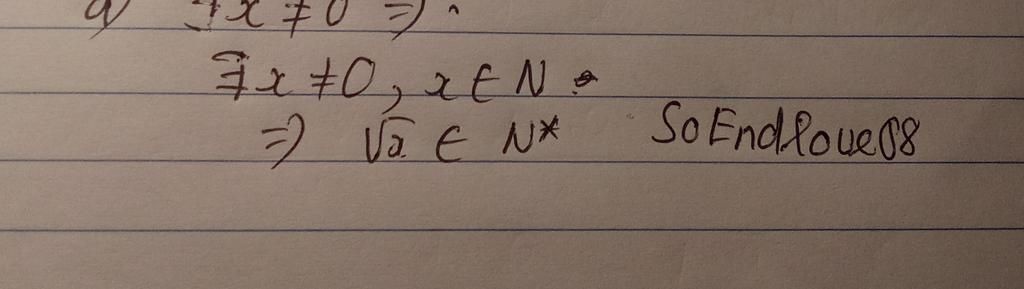 a) ∃x ≠ 0 ⇒
∃x ≠ 0, x ∈ N
⇒ √x ∈ N* SoEndlove08